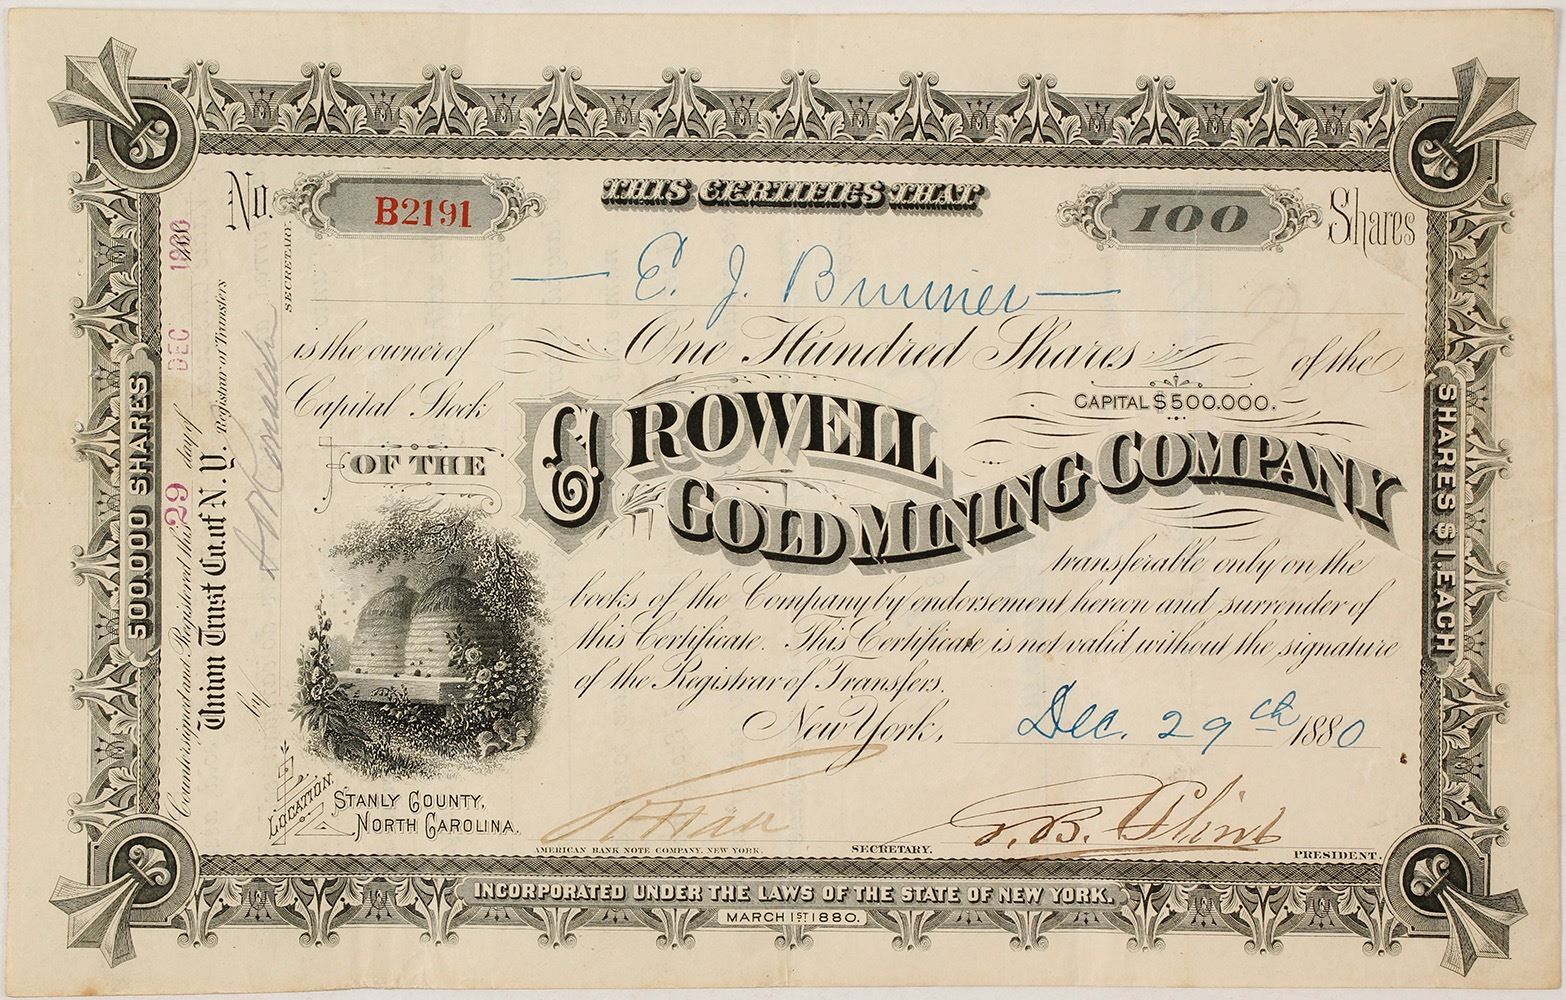 No. B2191
THIS CERTIFIES THAT
100 Shares
E. J. Brunner
is the owner of One Hundred Shares of the
Capital Stock
CAPITAL $500.000.
OF THE CROWELL
GOLD MINING COMPANY
transferable only on the
books of the Company by endorsement hereon and surrender of
this Certificate. This Certificate is not valid without the signature
of the Registrar of Transfers.
New York, Dec. 29th 1880
LOCATION.
STANLY COUNTY,
NORTH CAROLINA.
AMERICAN BANK NOTE COMPANY, NEW YORK.
SECRETARY.
T. B. Flint
PRESIDENT.
INCORPORATED UNDER THE LAWS OF THE STATE OF NEW YORK.
MARCH 1ST 1880.
500.000 SHARES
Countersigned and Registered this 29 day of DEC 1880
Union Trust Co. of N.Y. Registrar of Transfers
by
SECRETARY.
SHARES $1. EACH